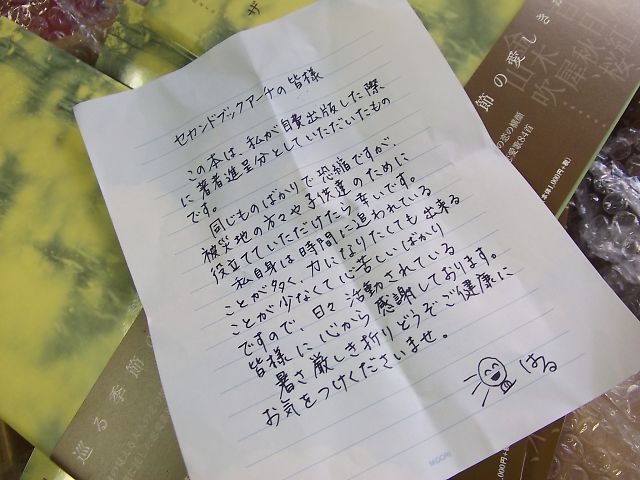 セカンドブックアーチの皆様
この本は、私が自費出版した際
に著者進呈分としていただいたもの
です。
同じものばかりで恐縮ですが、
被災地の方々や子供達のために
役立てていただけたら幸いです。
私自身は時間に追われている
ことが多く、力になりたくても出来る
ことが少なくて心苦しいばかり
ですので、日々活動されている
皆様に心から感謝しております。
暑さ厳しき折りどうぞご健康に
お気をつけくださいませ。
はる
MIDORI
節の愛しき
秋桜
木犀
吹
の恋の横顔
恋愛歌84首
本体1,000円+税
巡る季節の
1,000円+税
ザ